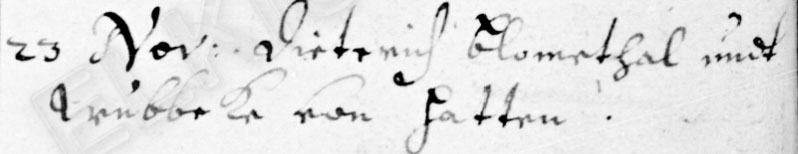 23 Nov: Dieterich Blomethal undt
Wübbeke von Hatten.